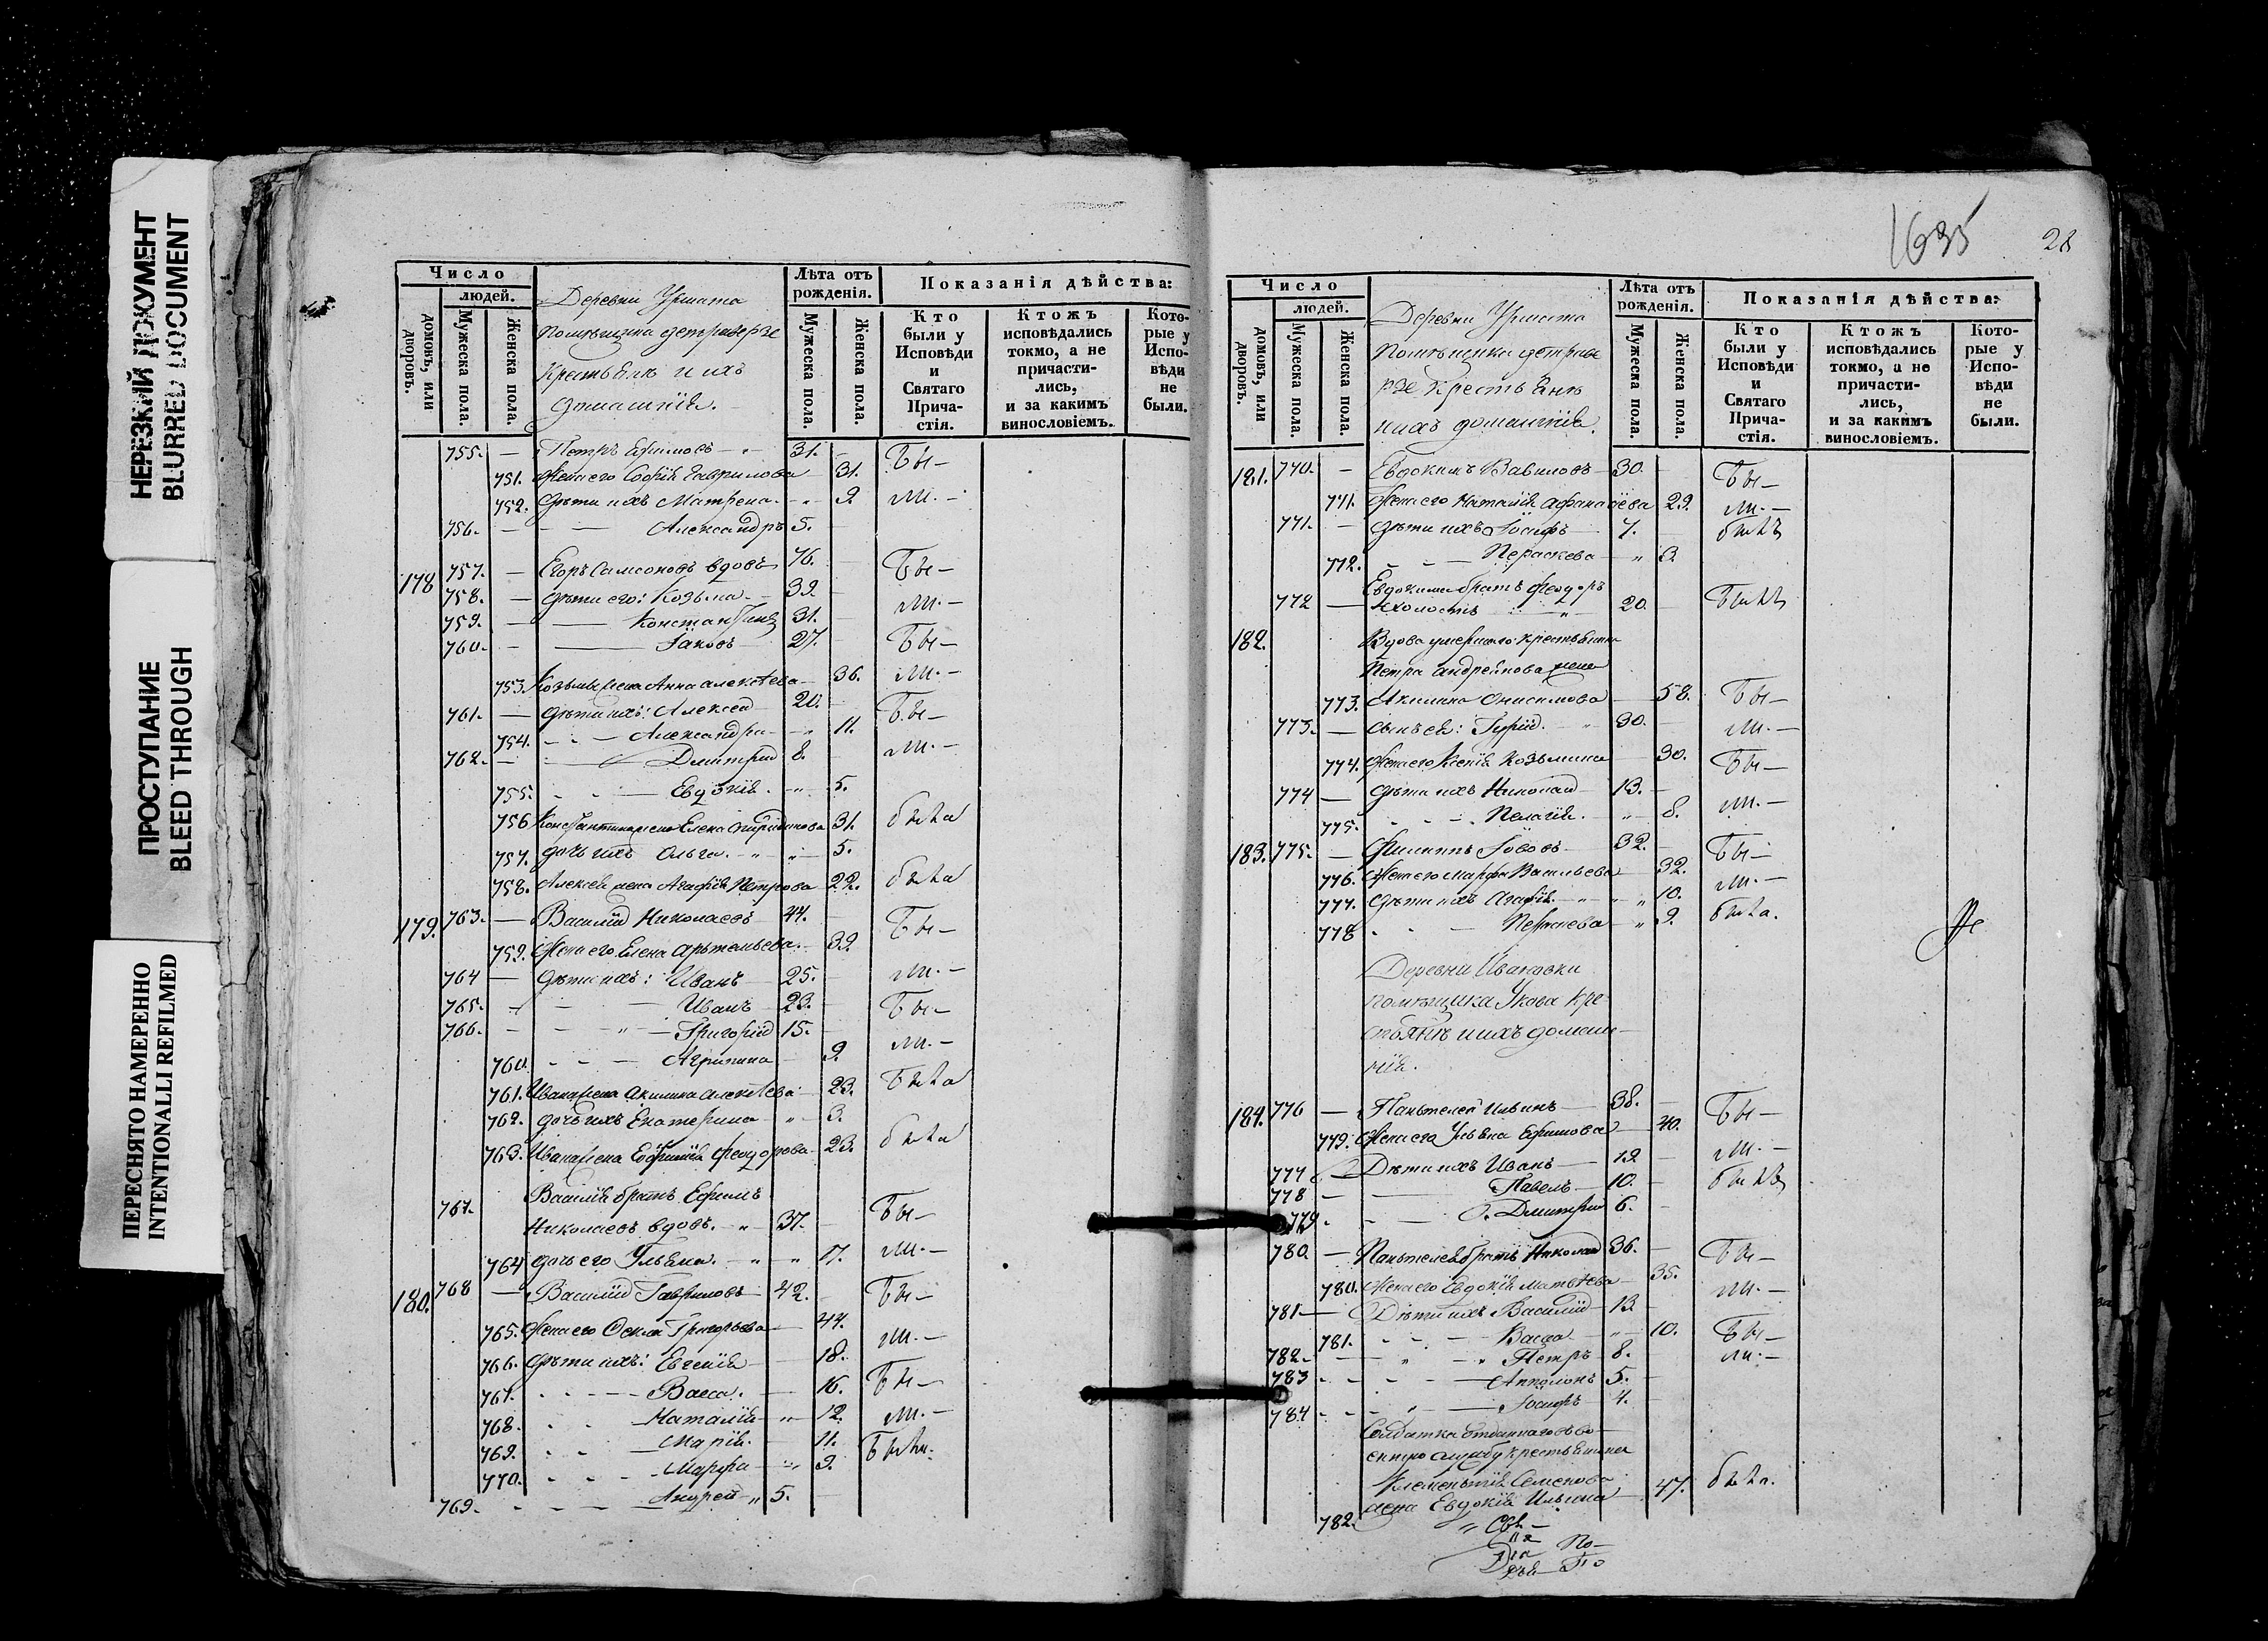 НЕРЕЗКИЙ ДОКУМЕНТ
BLURRED DOCUMENT
ПРОСТУПАНИЕ
BLEED THROUGH
ПЕРЕСНЯТО НАМЕРЕННО
INTENTIONALLI REFILMED
Число
людей.
домовъ, или дворовъ.
Мужеска пола.
Женска пола.
Деревни Урмата
помѣщика
крестьяне и ихъ
домашнія.
Лѣта отъ рожденія.
Мужеска пола.
Женска пола.
Показанія дѣйства:
Кто были у Исповѣди и Святаго Прича-стія.
Ктожъ исповѣдались токмо, а не причасти-лись, и за какимъ винословіемъ.
Кото-рые у Испо-вѣди не были.
755. — Петръ Ефимовъ 31. Бы—
751. Жена его Софія Гаврилова 31.
752. Дѣти ихъ Матрена 9 ли.—
756. — Александръ 5.
178 757. — Егоръ Самсоновъ вдовъ 76. Бы—
758. — Дѣти его: Козьма 39. ли.—
759. — Константинъ 31.
760. — Іаковъ 27. Бы—
753. Козьмы жена Анна Алексѣева 36. ли.—
761. — Дѣти ихъ: Алексей 20. Бы—
754. Александра 11.
762. — Димитрій 8. ли.—
755. Евдокія 5.
756 Константина жена Елена Спиридонова 31. была
757. дочь ихъ Ольга 5.
758. Алексея жена Агафія Петрова 22. была
179. 763. — Василій Николаевъ 44. Бы—
759. Жена его Елена 39.
764 — Дѣти ихъ: Иванъ 25. ли.—
765. Иванъ 23. Бы—
766. — Григорій 15.
760. Агрипина 9. ли.—
761. Ивана жена Акилина Алексѣева 23. Была
762. дочь ихъ Екатерина 3.
763. Ивана жена Евфимія Феодорова 23. была
767. Василія братъ Ефимъ
Николаевъ вдовъ. 37. Бы—
764 дочь его Ульяна. 7. ли.—
180. 768 — Василій Гавриловъ 42. Бы—
765. Жена его Фекла Григорьева 44. ли.—
766. Дѣти ихъ: Евгенія 18.
767. Васса. 16. Бы—
768. Наталія 12. ли.—
769. Марія 11. Были.
770. Марфа 9.
769. Андрей 5.
1635
28
Число
людей.
домовъ, или дворовъ.
Мужеска пола.
Женска пола.
Деревни Урмата
помѣщика
крестьянъ
и ихъ домашнія.
Лѣта отъ рожденія.
Мужеска пола.
Женска пола.
Показанія дѣйства:
Кто были у Исповѣди и Святаго Прича-стія.
Ктожъ исповѣдались токмо, а не причасти-лись, и за какимъ винословіемъ.
Кото-рые у Испо-вѣди не были.
181. 770. — Евдокимъ Вавиловъ 30. Бы—
771. Жена его Наталія Афанасіева 29. ли.—
771. — Дѣти ихъ Іосифъ 7. былъ
772. Пераскева 3.
Евдокима братъ Феодоръ
772 — холостъ 20. Былъ
182. Вдова умершаго крестьянина
Петра Андреянова жена
773. Акилина Онисимова 58. Бы—
773. — сынъ ея: Гурій. 30. ли.—
774. Жена его Ксенія Козьмина 30. Бы—
774 — Дѣти ихъ Николай 13.
775. Пелагія. 8. ли.—
183. 775. — Филиппъ Іововъ 32. Бы—
776. Жена его Марфа Васильева 32. ли.—
777. Дѣти ихъ Агафія 10.
778 Пераскева 9. была.
Деревни Ивановки
помѣщика Укова кре-
стьянъ и ихъ домаш-
нія.
184. 776 — Пантелей Ильинъ 38. Бы—
779. Жена его Ульяна Ефимова 40. ли.—
777 Дѣти ихъ Иванъ 12 былъ
778 — Павелъ 10.
779. Димитрій 6.
780. — Пантелея братъ Николай 36. Бы—
780. Жена его Евдокія Матвѣева 35. ли.—
781 — Дѣти ихъ Василій 13.
781. Васса 10. Бы—
782. Петръ 8. ли.—
783 Апполонъ 5.
784 Іосифъ 4.
Солдатка отданнаго въ во-
енную службу крестьянина
Клементія Семенова
782. жена Евдокія Ильина 47. была.